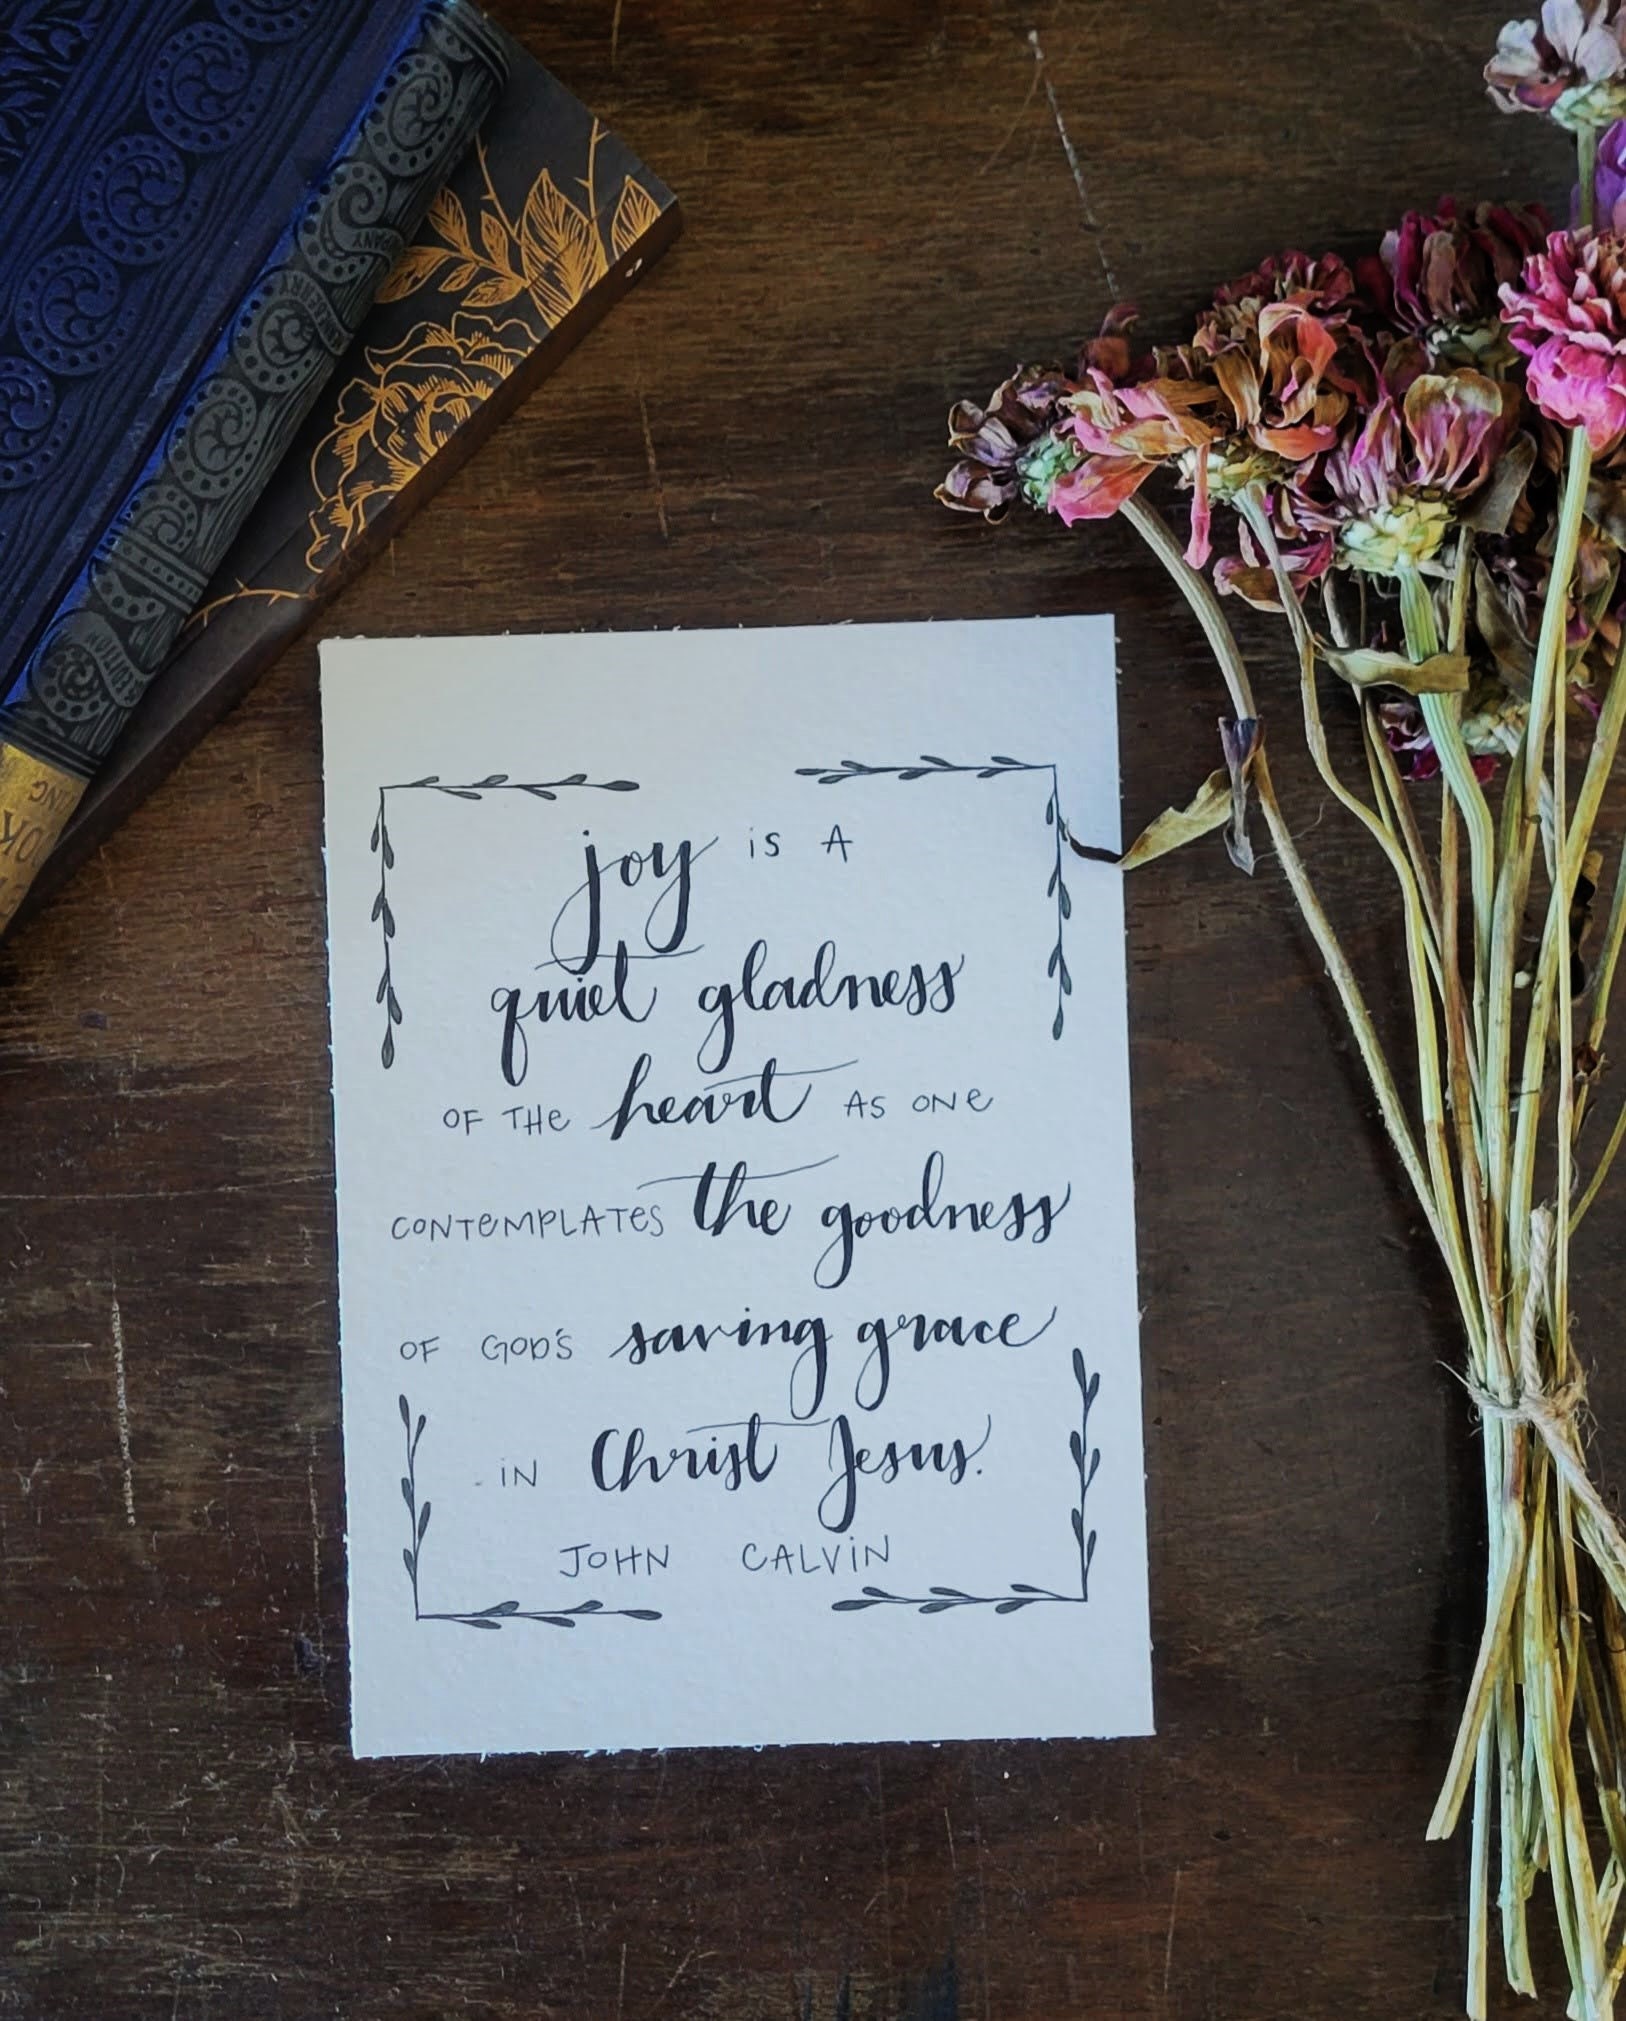 joy is A
quiet gladness
OF THE heart AS ONE
CONTEMPLATES the goodness
OF GOD'S saving grace
in Christ Jesus.
JOHN CALVIN